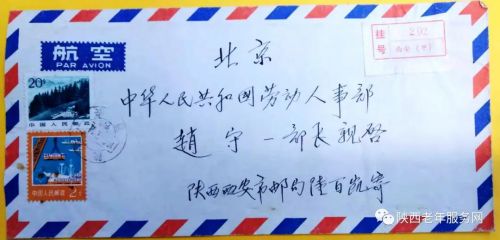 挂 202
号 西安(甲)
航空
PAR AVION
20分
中国人民邮政
中国人民邮政
2分
北京
中华人民共和国劳动人事部
趙守一部长親啓
陕西西安市邮局陸百凯寄
陕西老年服务网